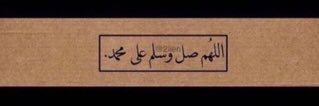 اللهم صل وسلم على محمد.